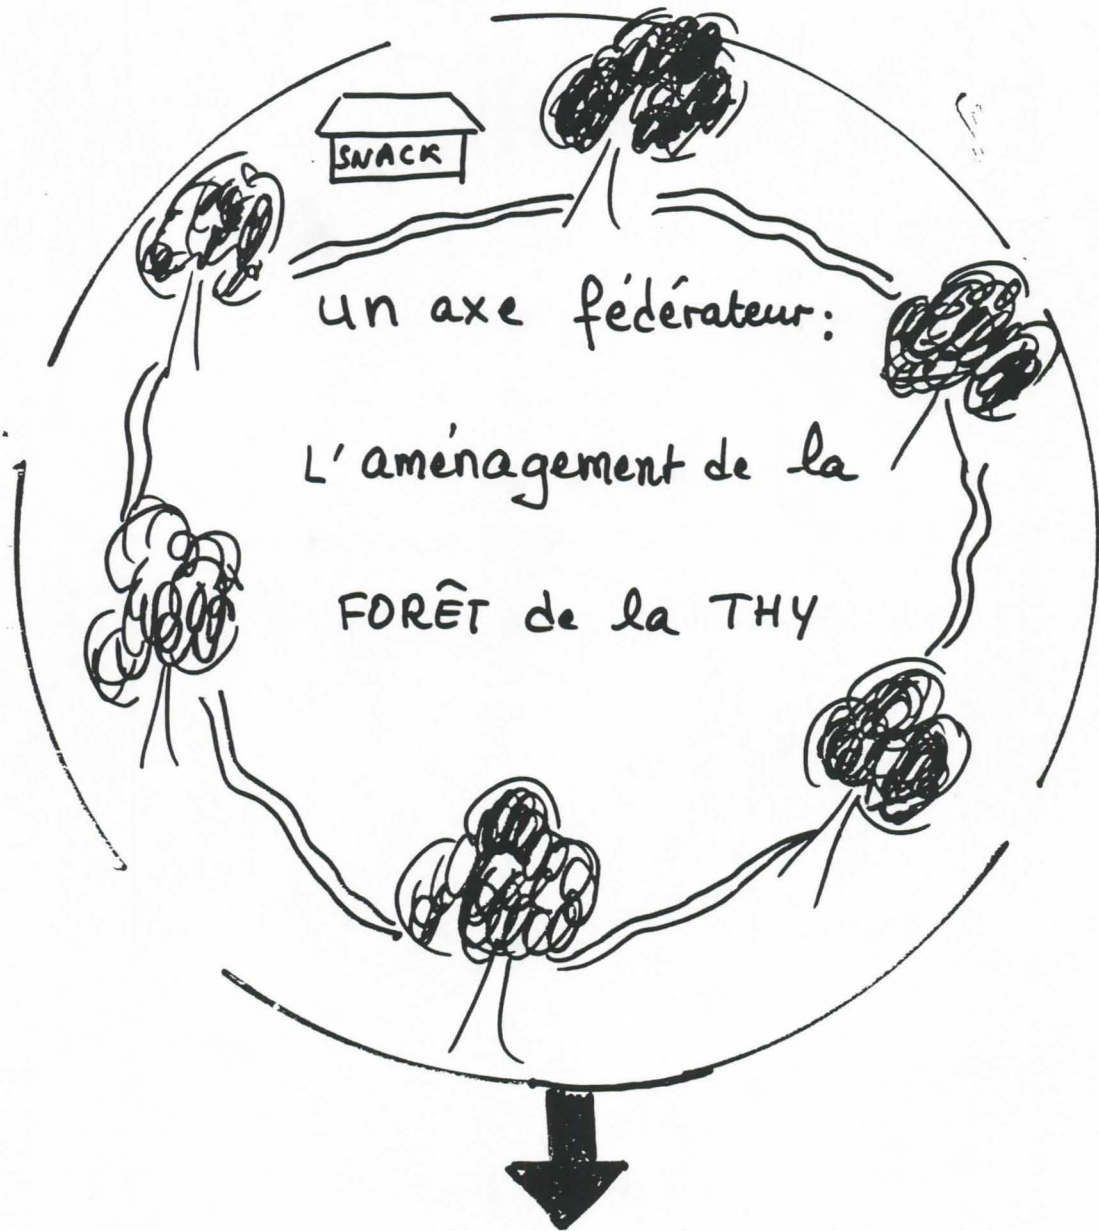 SNACK
un axe fédérateur:
L'aménagement de la
FORÊT de la THY